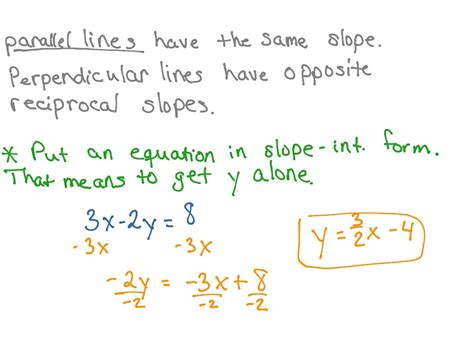 parallel lines have the same slope.
Perpendicular lines have opposite
reciprocal slopes.
* Put an equation in slope-int. form.
That means to get y alone.
3x-2y=8
-3x -3x
-2y/-2 = -3x/-2 + 8/-2
y = 3/2x - 4